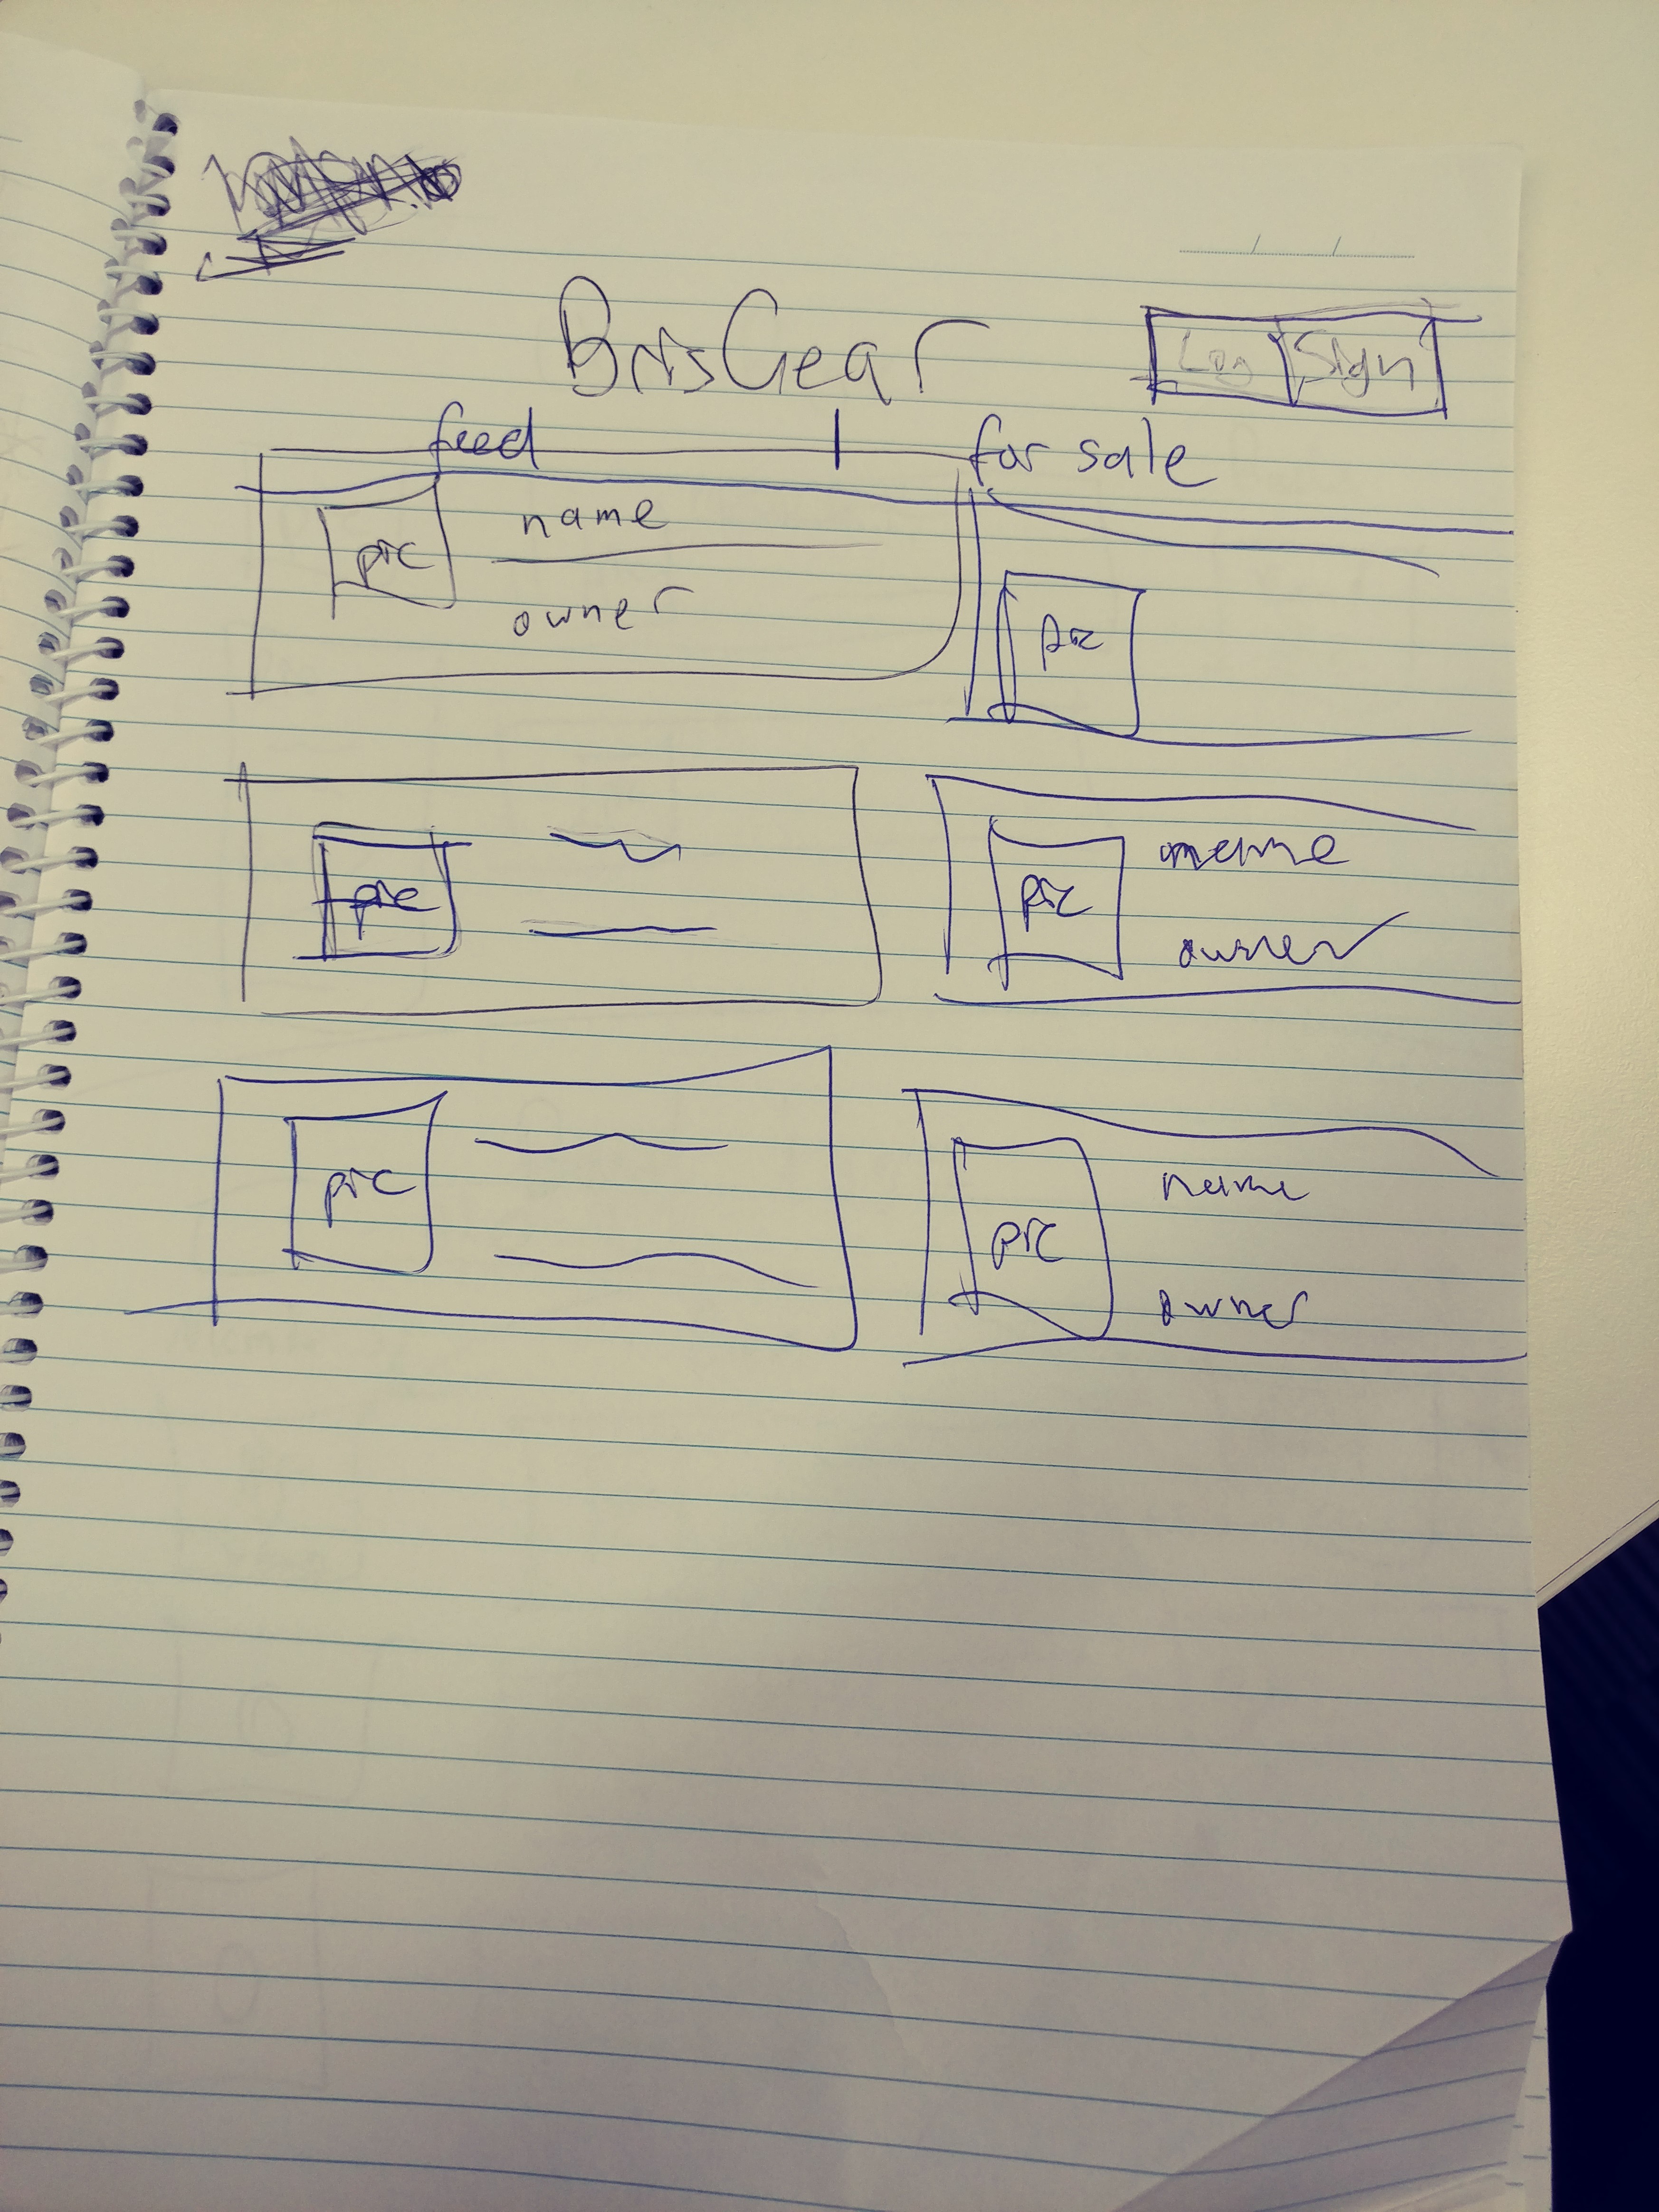 BrisGear
Log Sign
feed | for sale
pic name
owner
pic
pic
pic name
owner
pic
pic name
owner